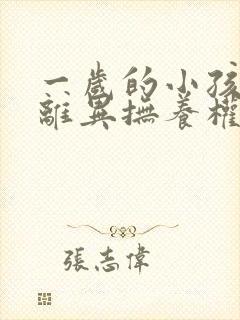 一歲的小孩
離異撫養權
張志偉